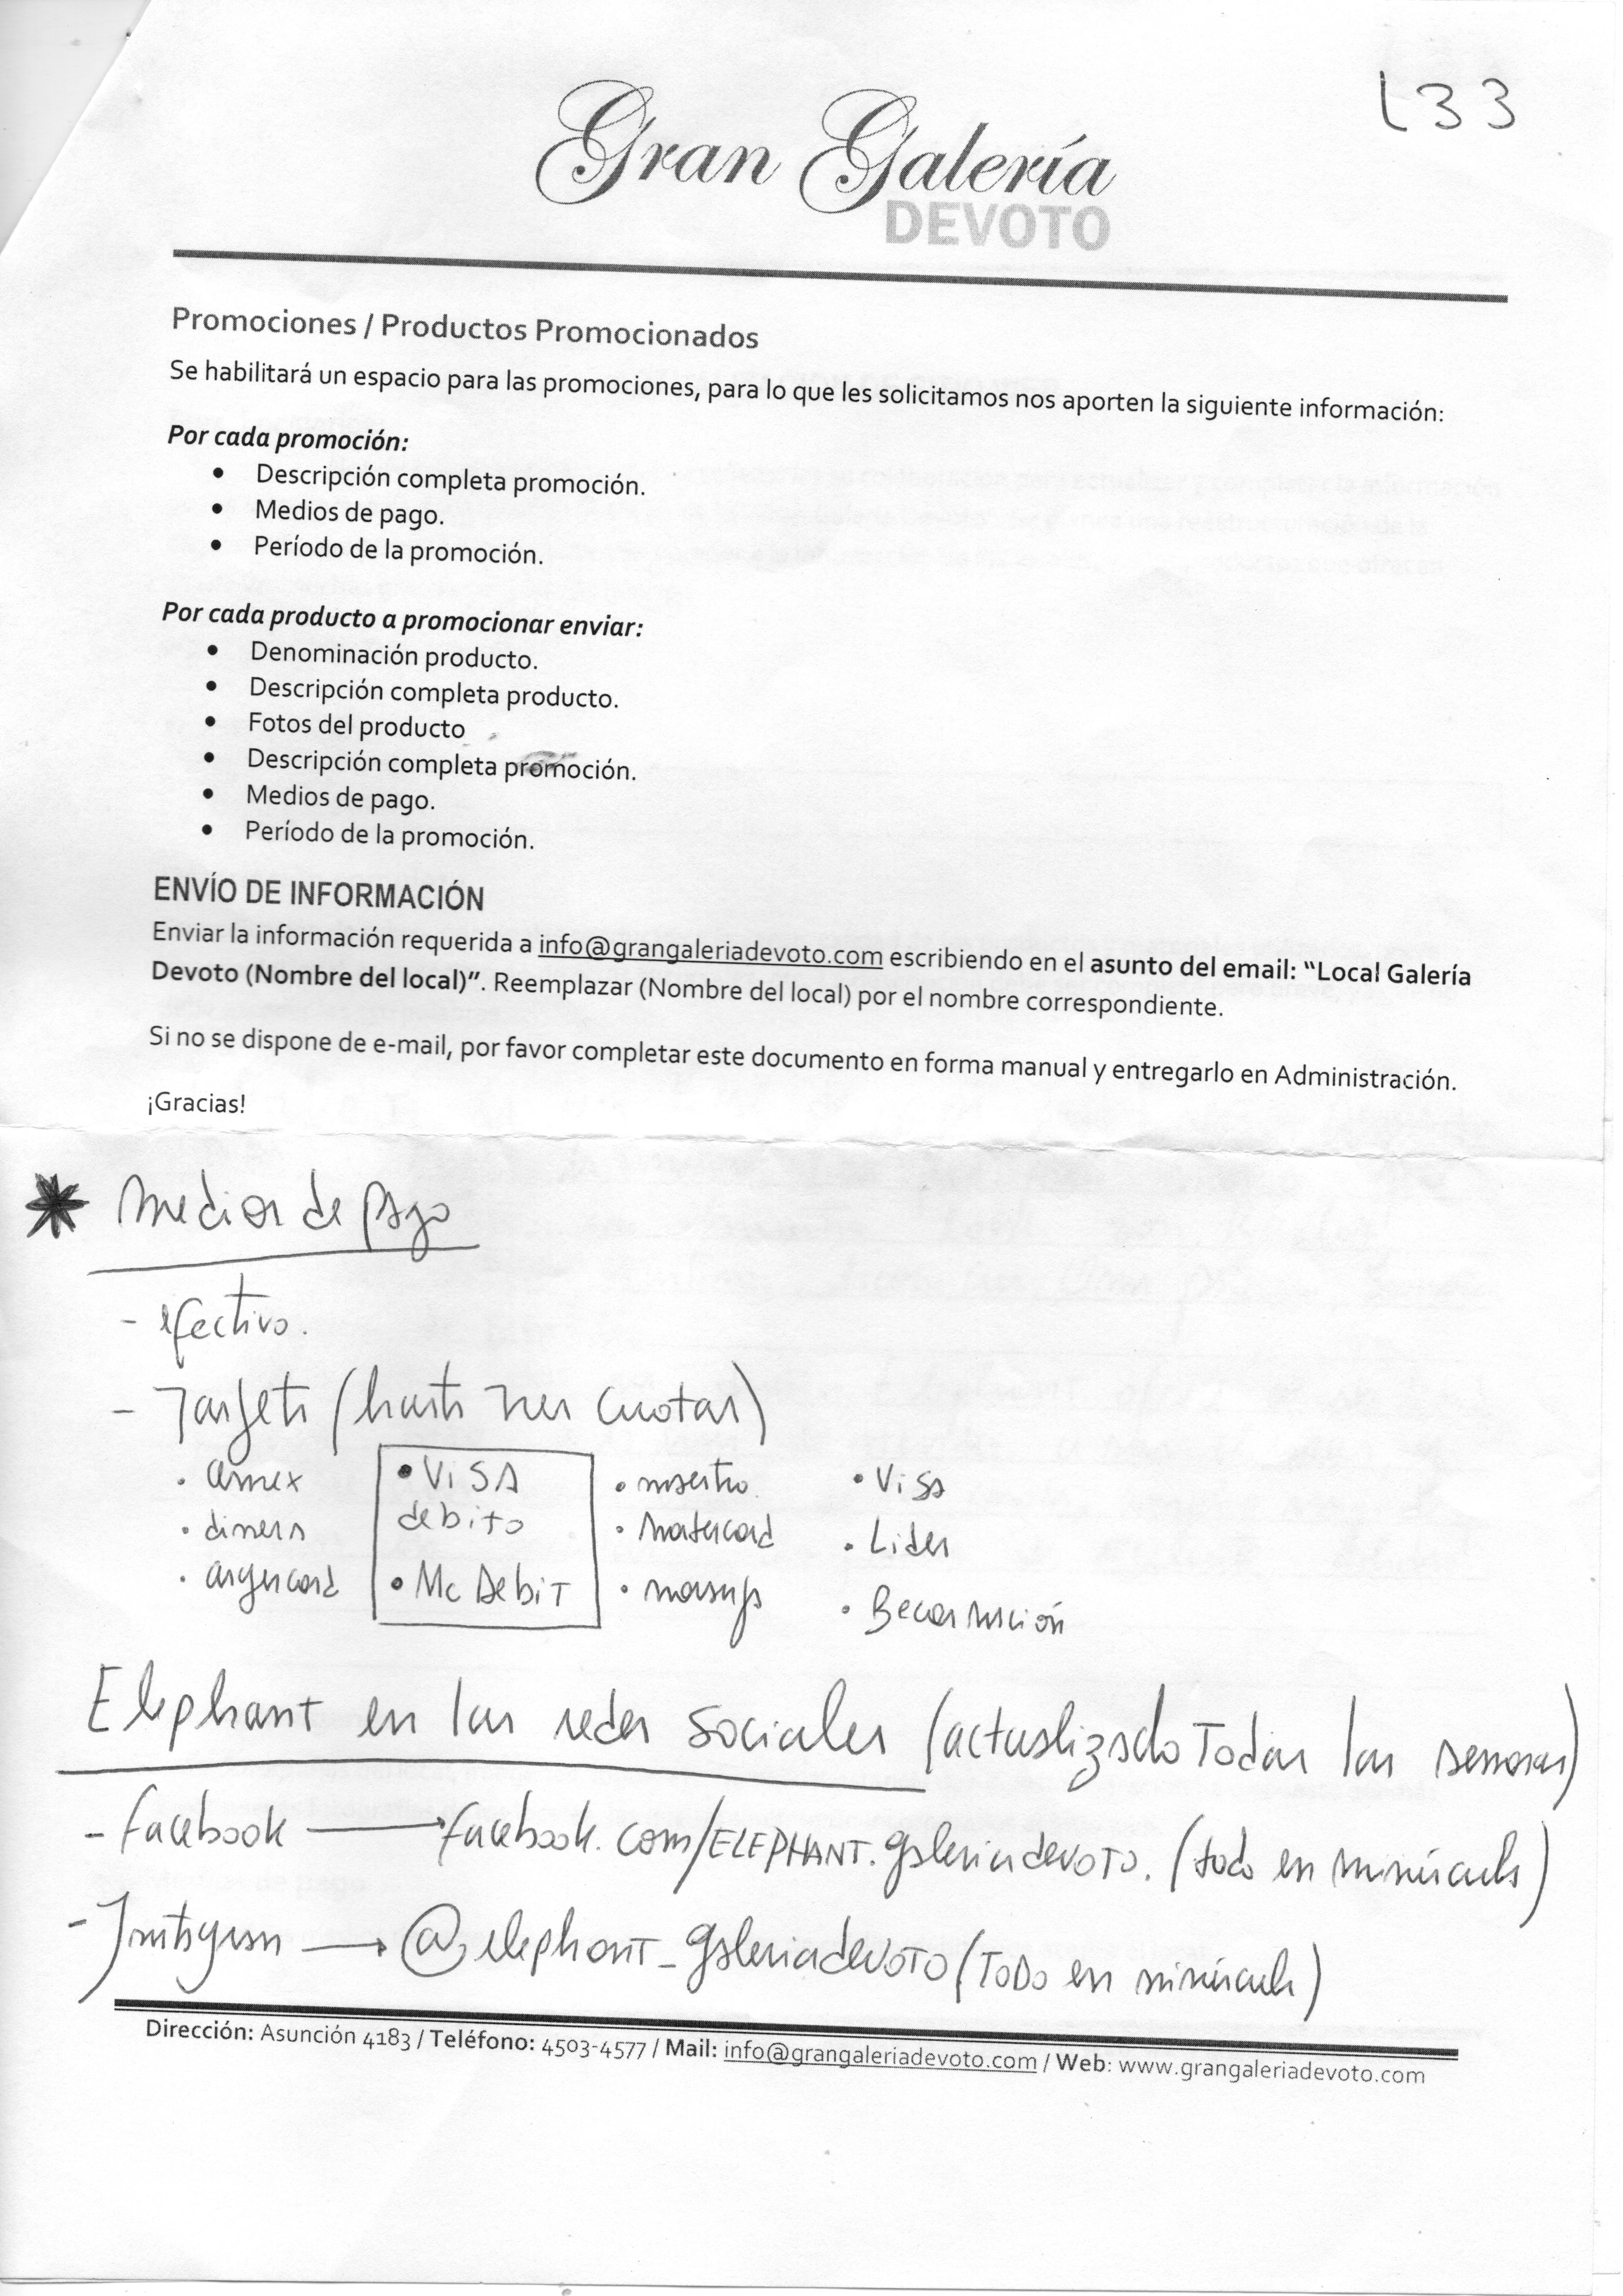 L33
Gran Galería
DEVOTO
Promociones / Productos Promocionados
Se habilitará un espacio para las promociones, para lo que les solicitamos nos aporten la siguiente información:
Por cada promoción:
• Descripción completa promoción.
• Medios de pago.
• Período de la promoción.
Por cada producto a promocionar enviar:
• Denominación producto.
• Descripción completa producto.
• Fotos del producto
• Descripción completa promoción.
• Medios de pago.
• Período de la promoción.
ENVÍO DE INFORMACIÓN
Enviar la información requerida a info@grangaleriadevoto.com escribiendo en el asunto del email: “Local Galería
Devoto (Nombre del local)”. Reemplazar (Nombre del local) por el nombre correspondiente.
Si no se dispone de e-mail, por favor completar este documento en forma manual y entregarlo en Administración.
¡Gracias!
* Medios de pago
- efectivo.
- Tarjeta (hasta tres cuotas)
• amex • VISA • maestro. • Visa
debito
• diners • Mastercard • Lider
• argencard • Mc Debit •  
Elephant en las redes sociales (actualizado Todas las semanas)
- facebook → facebook.com/ELEPHANT.galeriadevoto. (todo en minúscula)
- Instagram → @elephant_galeriadevoto (Todo en minúscula)
Dirección: Asunción 4183 / Teléfono: 4503-4577 / Mail: info@grangaleriadevoto.com / Web: www.grangaleriadevoto.com